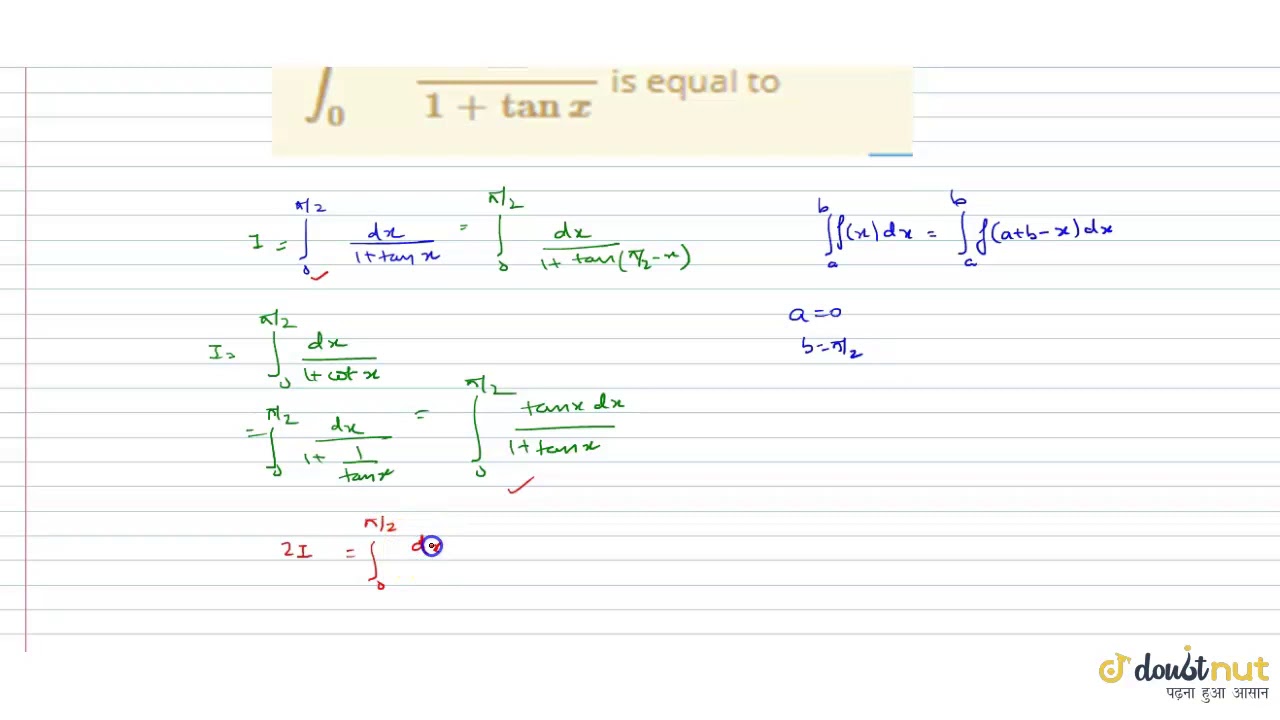 ∫₀ 1 + tan x is equal to
I = ∫₀^{π/2} dx/(1+tan x) = ∫₀^{π/2} dx/(1+ tan(π/2-x))
∫ₐᵇ f(x)dx = ∫ₐᵇ f(a+b-x)dx
a=0
b=π/2
I= ∫₀^{π/2} dx/(1+cot x)
= ∫₀^{π/2} dx/(1+ 1/tanx) = ∫₀^{π/2} tanx dx/(1+tanx)
2I = ∫₀^{π/2} dx
doubtnut
पढ़ना हुआ आसान